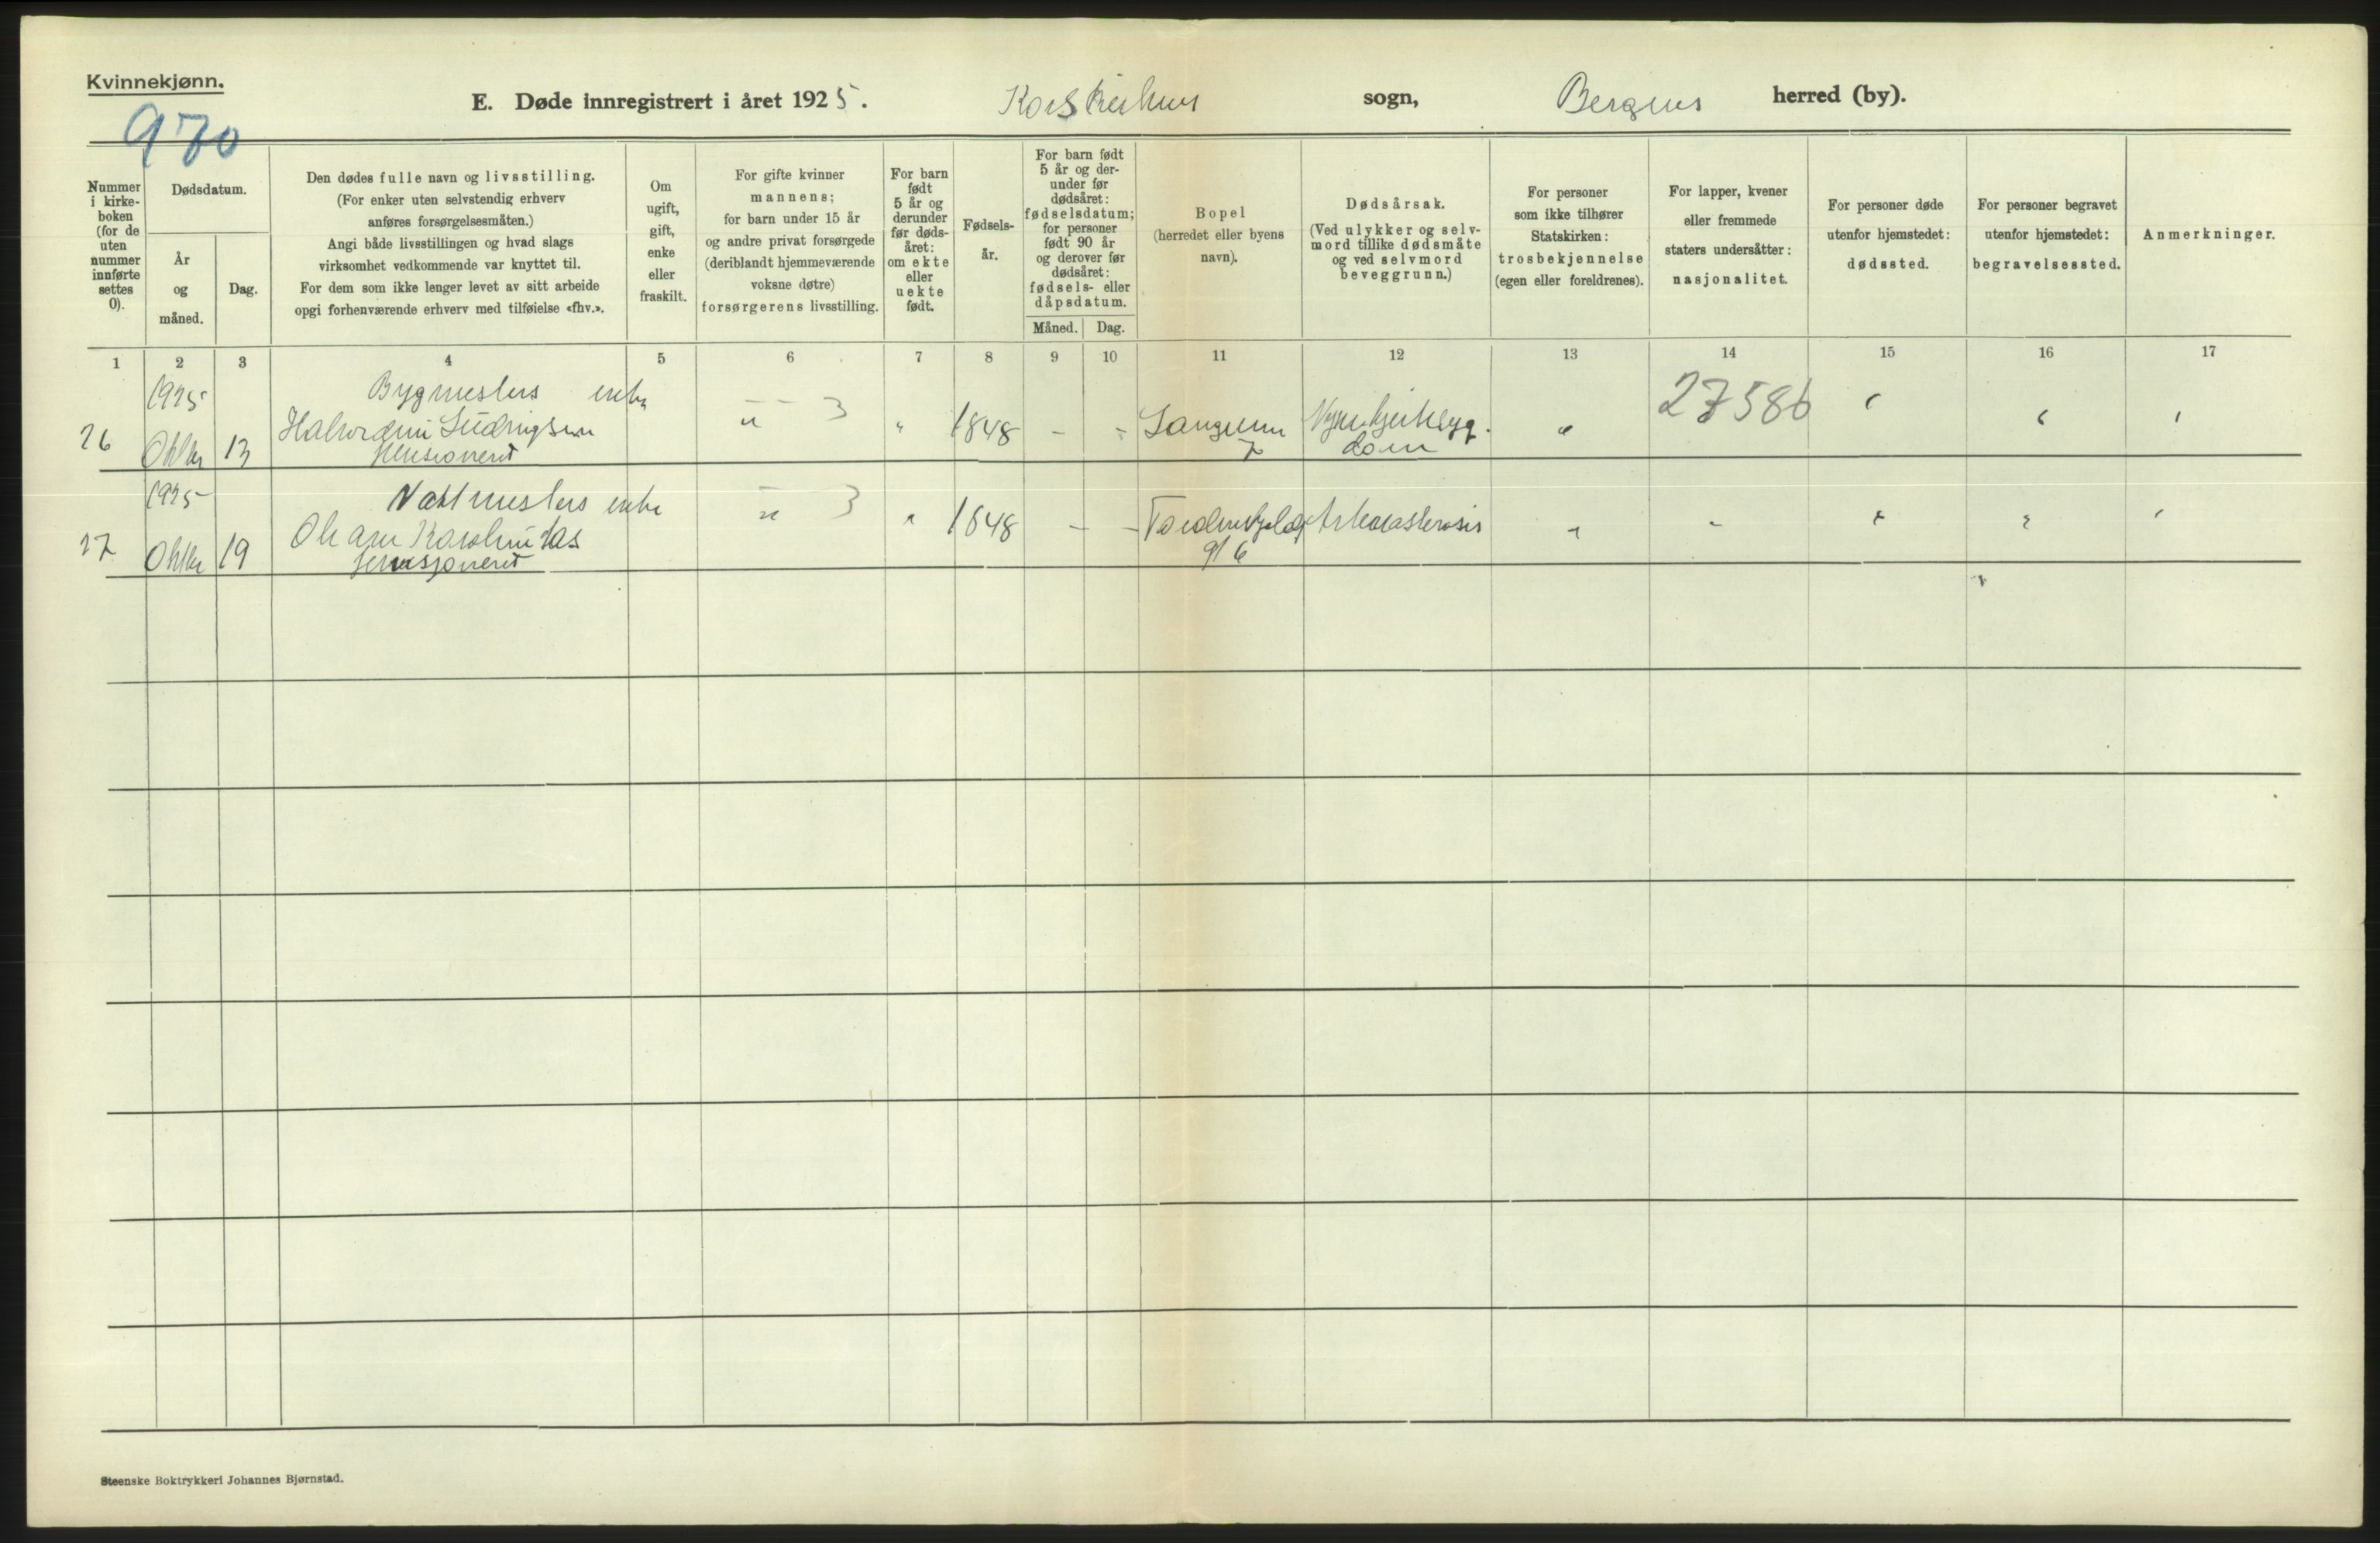 Kvinnekjønn.
970
E. Døde innregistrert i året 1925. Korskirkens sogn, Bergens herred (by).
Nummer
i kirke-
boken
(for de
uten
nummer
innførte
settes
0).
Dødsdatum.
År
og
måned.
Dag.
Den dødes fulle navn og livsstilling.
(For enker uten selvstendig erhverv
anføres forsørgelsesmåten.)
Angi både livsstillingen og hvad slags
virksomhet vedkommende var knyttet til.
For dem som ikke lenger levet av sitt arbeide
opgi forhenværende erhverv med tilføielse «fhv.».
Om
ugift,
gift,
enke
eller
fraskilt.
For gifte kvinner
mannens;
for barn under 15 år
og andre privat forsørgede
(deriblandt hjemmeværende
voksne døtre)
forsørgerens livsstilling.
For barn
født
5 år og
derunder
før døds-
året:
om ekte
eller
uekte
født.
Fødsels-
år.
For barn født
5 år og der-
under før
dødsåret:
fødselsdatum;
for personer
født 90 år
og derover før
dødsåret:
fødsels- eller
dåpsdatum.
Måned. Dag.
Bopel
(herredet eller byens
navn).
Dødsårsak.
(Ved ulykker og selv-
mord tillike dødsmåte
og ved selvmord
beveggrunn.)
For personer
som ikke tilhører
Statskirken:
trosbekjennelse
(egen eller foreldrenes).
For lapper, kvener
eller fremmede
staters undersåtter:
nasjonalitet.
For personer døde
utenfor hjemstedet:
dødssted.
For personer begravet
utenfor hjemstedet:
begravelsessted.
Anmerkninger.
1 2 3 4 5 6 7 8 9 10 11 12 13 14 15 16 17
1925 Bygmesters enke 3 27586
26 Oktbr 13 Halvordine Ludvigsen " " 1848 - - "
pensioneret 7 dom
1925 Vaktmesters enke " 3
27 Oktbr 19 Karoline Aas " 1848 - - Arteriosclerosis "
pensjoneret 9/6
Steenske Boktrykkeri Johannes Bjørnstad.